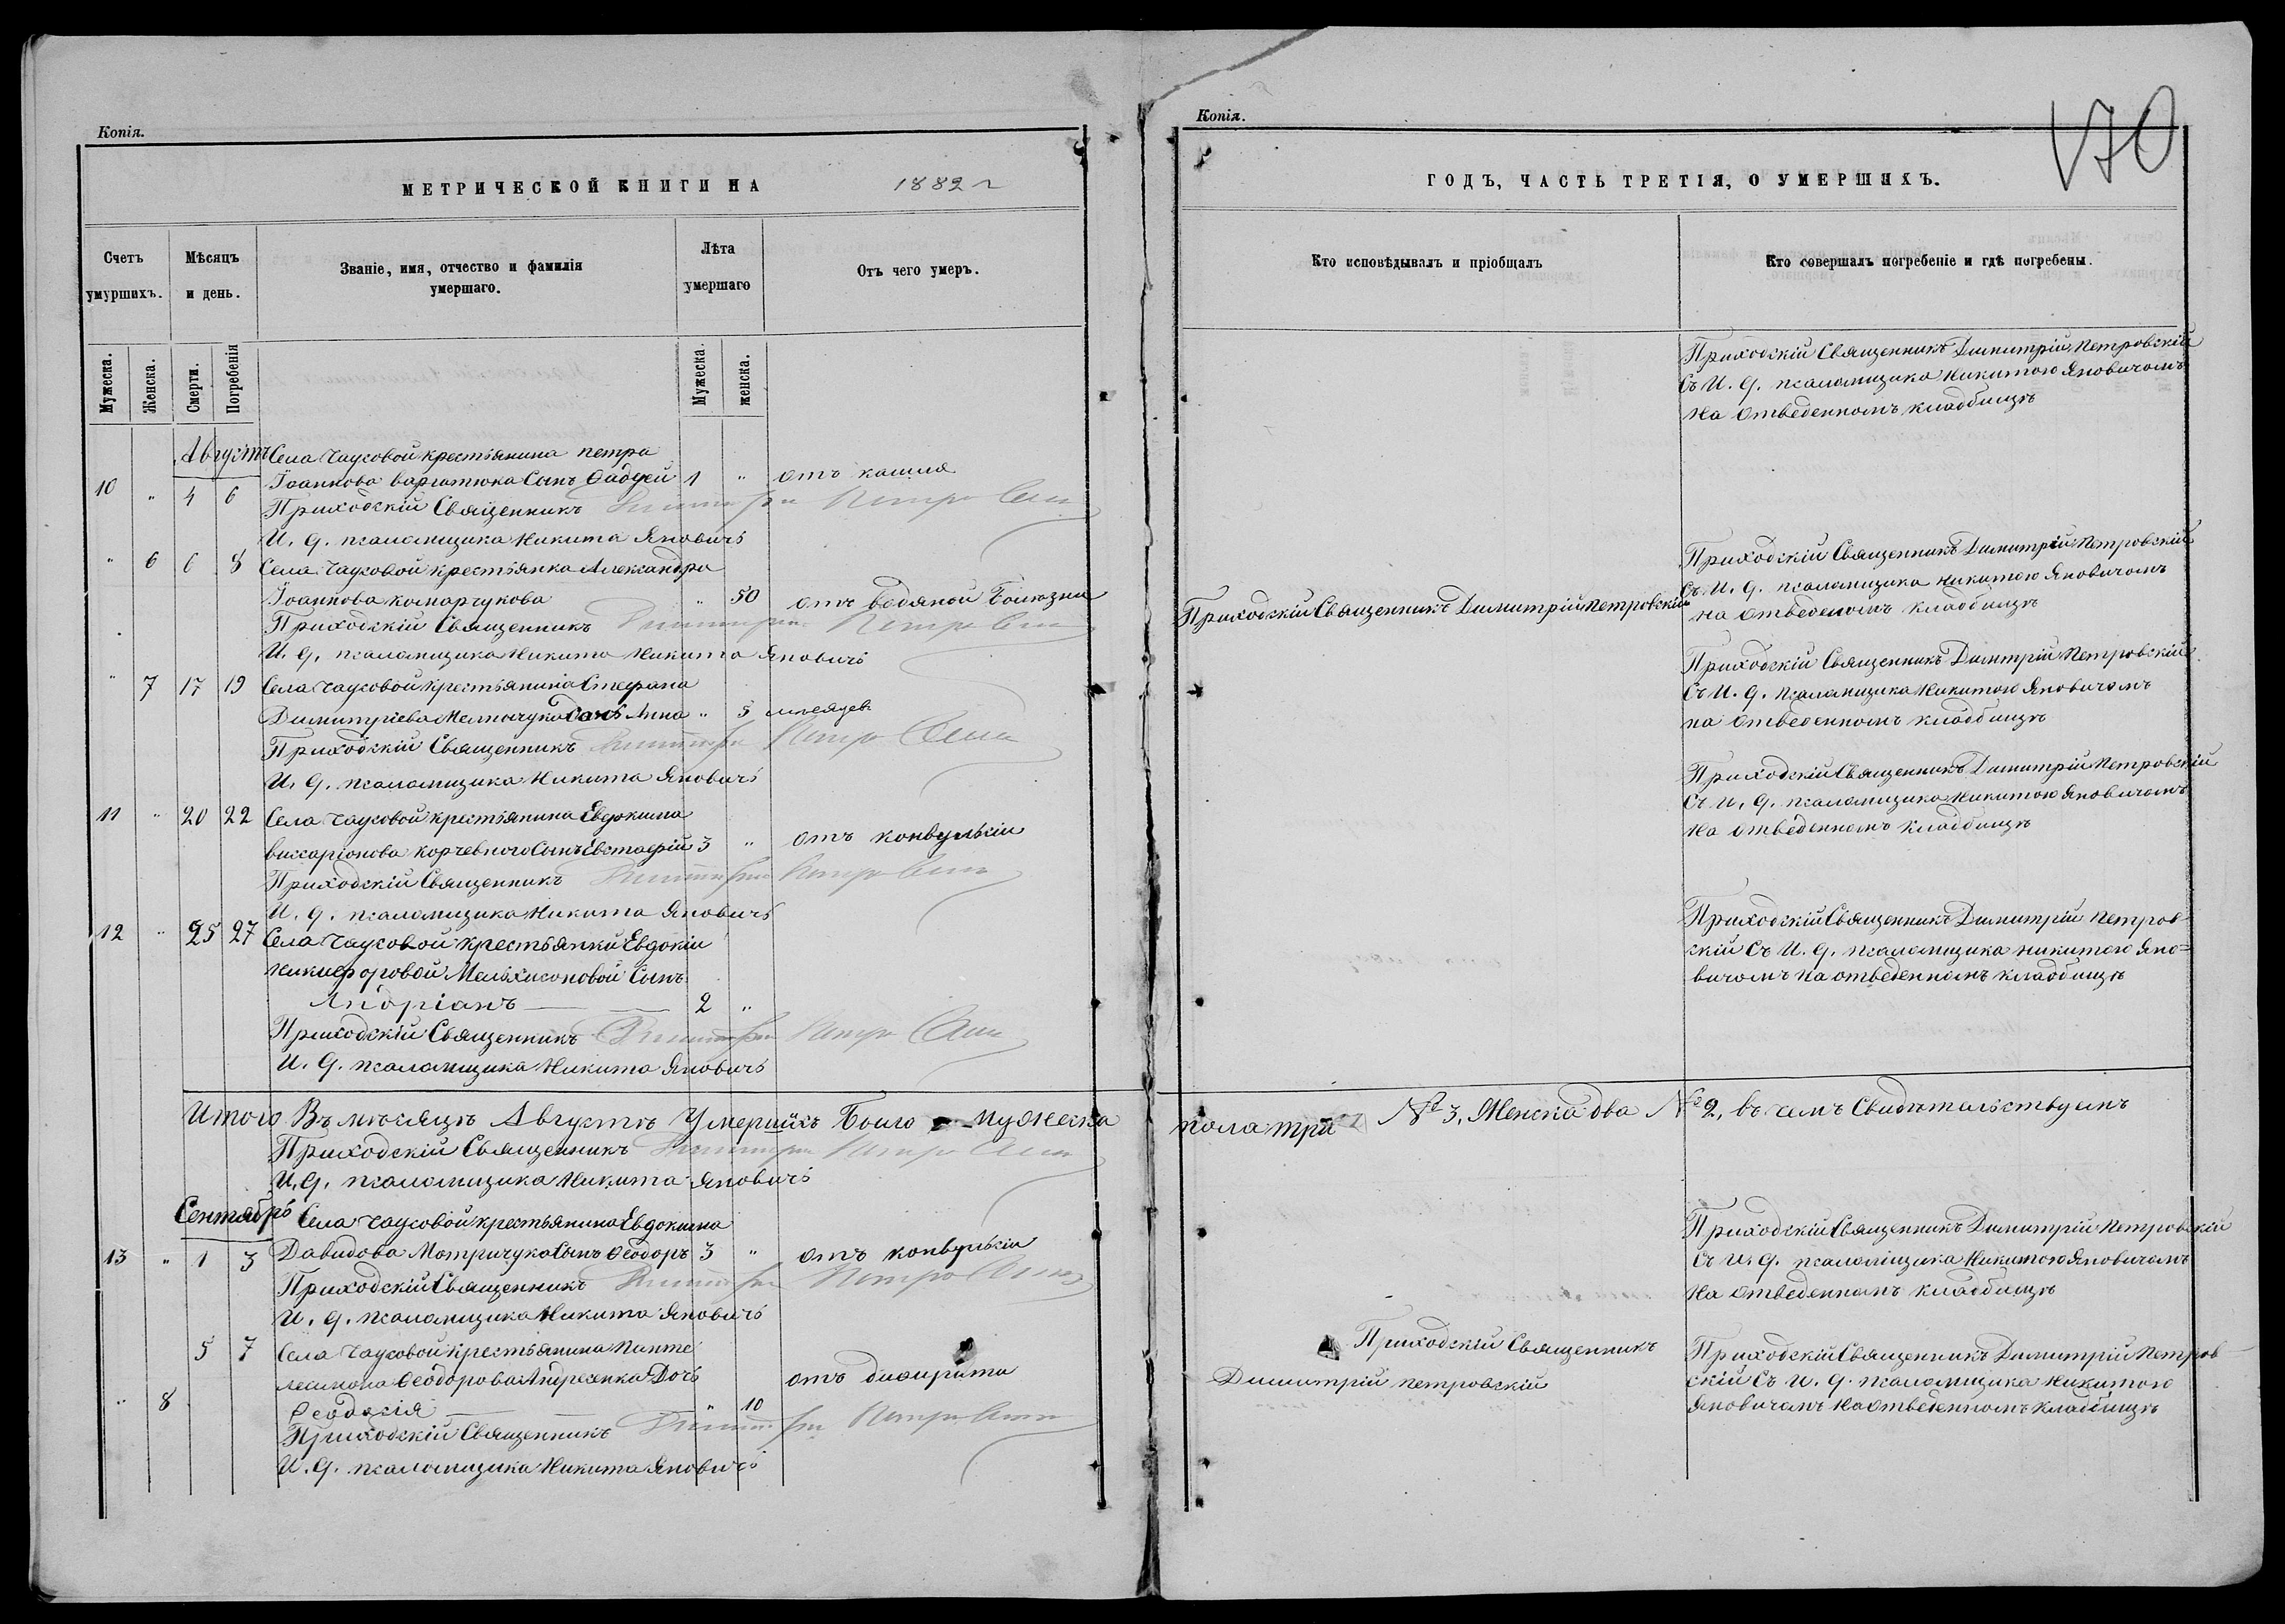 Копія.
МЕТРИЧЕСКОЙ КНИГИ НА 1882 г
Счетъ умуршихъ.
Мѣсяцъ и день.
Званіе, имя, отчество и фамилія умершаго.
Лѣта умершаго
Отъ чего умеръ.
Мужеска.
Женска.
Смерти.
Погребенія
Мужеска.
женска.
Августъ Села Чаусовой крестьянина петра
10 " 4 6 Іоаннова Сынъ Фаддей 1 " отъ кашля
Приходскій Священникъ Димитрій Петровскій
И. д. псаломщика Никита Яновичъ
" 6 6 8 Села Чаусовой крестьянка Александра
Іоаннова комарчукова " 50 отъ водяной болѣзни
Приходскій Священникъ Димитрій Петровскій
И. д. псаломщика Никита Никита Яновичъ
" 7 17 19 Села Чаусовой крестьянина Стефана
Димитріева Мельничука Дочь Анна " 5 мѣсяцев
Приходскій Священникъ Димитрій Петровскій
И. д. псаломщика Никита Яновичъ
11 " 20 22 Села Чаусовой крестьянина Евдокима
виссаріонова корчевного Сынъ Евстафій 3 " отъ конвульсіи
Приходскій Священникъ Димитрій Петровскій
И. д. псаломщика Никита Яновичъ
12 " 25 27 Села Чаусовой крестьянки Евдокіи
Никифоровой Сынъ
Андріанъ 2 "
Приходскій Священникъ Димитрій Петровскій
И. д. псаломщика Никита Яновичъ
Итого Въ мѣсяцѣ Августѣ Умершихъ Было мужеска
Приходскій Священникъ Димитрій Петровскій
И. д. псаломщика Никита Яновичъ
Сентябрь Села Чаусовой крестьянина Евдокима
13 " 1 3 Давидова Матричука Сынъ Ѳеодоръ 3 " отъ конвульсіи
Приходскій Священникъ Димитрій Петровскій
И. д. псаломщика Никита Яновичъ
5 7 Села Чаусовой крестьянина Панте
леимона Ѳеодорова Андреенка Дочь отъ дифирита
" 8 Ѳеодосія " 10
Приходскій Священникъ Димитрій Петровскій
И. д. псаломщика Никита Яновичъ
Копія.
170
ГОДЪ, ЧАСТЬ ТРЕТІЯ, О УМЕРШИХЪ.
Кто исповѣдывалъ и пріобщалъ
Кто совершалъ погребеніе и гдѣ погребены.
Приходскій Священникъ Димитрій Петровскій
Съ И. д. псаломщика Никитою Яновичомъ
На отведенномъ кладбищѣ
Приходскій Священникъ Димитрій Петровскій
Приходскій Священникъ Димитрій Петровскій
Съ И. д. псаломщика Никитою Яновичомъ
на отведеномъ кладбищѣ
Приходскій Священникъ Димитрій Петровскій
Съ И. д. псаломщика Никитою Яновичомъ
на отведенномъ кладбищѣ
Приходскій Священникъ Димитрій Петровскій
Съ И. д. псаломщика Никитою Яновичомъ
На отведенномъ кладбищѣ
Приходскій Священникъ Димитрій Петров
скій Съ И. д. псаломщика Никитою Яно=
вичомъ на отведенномъ кладбищѣ
пола три № 3, Женска два № 2, въ чемъ Свидѣтельствуемъ
Приходскій Священникъ Димитрій Петровскій
Съ И. д. псаломщика Никитою Яновичомъ
На отведенномъ кладбищѣ
Приходскій Священникъ
Димитрій петровскій
Приходскій Священникъ Димитрій Петров
скій Съ И. д. псаломщика Никитою
Яновичомъ На отведенномъ кладбищѣ